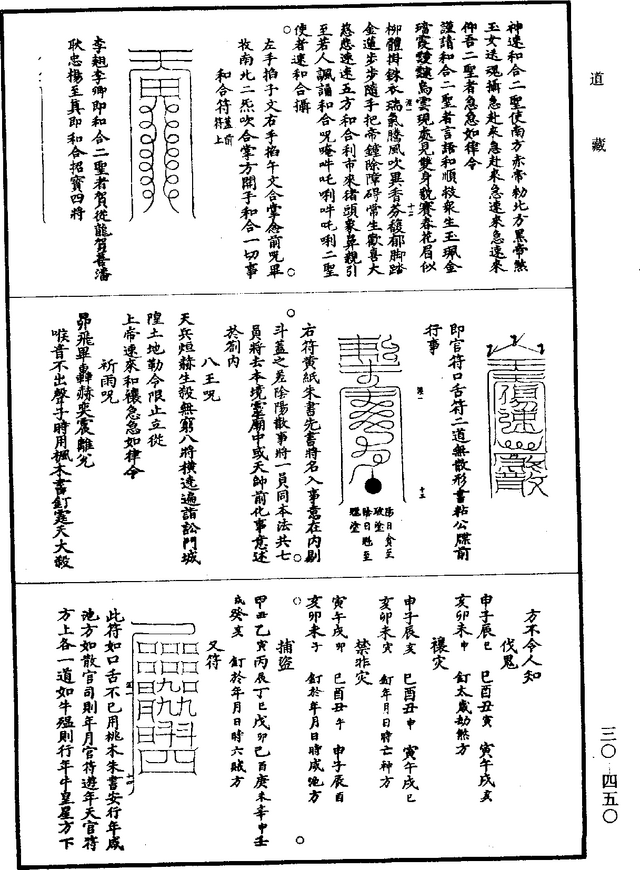 道藏
神速和合二聖使南方赤帝勅北方黑帝煞
玉女送魂攝急赴來急赴來急速來急速來
仰吾二聖者急急如律令
謹請和合二聖者言語和順救衆生玉珮金
璫霞靉靆鳥雲現處見雙身觀賽春花眉似
柳體掛銖衣瑞氣騰風吹異香芬馥郁脚踏
金蓮步步隨手把帝鐘除障碍常生歡喜大
慈悲速速五方和合利市來猪頭象鼻親引
至若人諷誦和合呪唵吽吒唎吽吒唎二聖
使者速和合攝
左手掐子文右手掐午文合掌念前呪畢
收南北二炁吹合掌方開手和合一切事
和合符
李翹李卿即和合二聖者賀從龍賀善潘
耿忠楊至真即和合招寶四將
即官符口舌符二道無散形書粘公牒前
行事
右符黃紙朱書先書將名入事意在內剔
斗蓋之差陰陽散事將一員同本法共七
員將去本境靈廟中或天師前化事意述
於劄內
八王呪
天兵烜赫生殺無窮八將橫遶遍詣訟門城
隍土地勒令限止立從
上帝速來和禳急急如律令
祈雨呪
昴飛畢轟赫奕震離兊
喉音不出聲子時用楓木書釘霆天大殺
方不令人知
伐鬼
申子辰巳 巳酉丑寅 寅午戌亥
亥卯未申 釘太歲劫煞方
禳灾
申子辰亥 巳酉丑申 寅午戌巳
亥卯未寅 釘年月日時亡神方
禁非灾
寅午戌卯 巳酉丑午 申子辰酉
亥卯未子 釘於年月日時咸池方
捕盜
甲丑乙寅丙辰丁巳戊卯巳酉庚未辛申壬
戌癸亥 釘於年月日時六賊方
又符
此符如口舌不已用桃木朱書安行年咸
池方如散官司則年月官符遊年天官符
方上各一道如牛瘟則行年牛皇星方下
三〇-四五〇